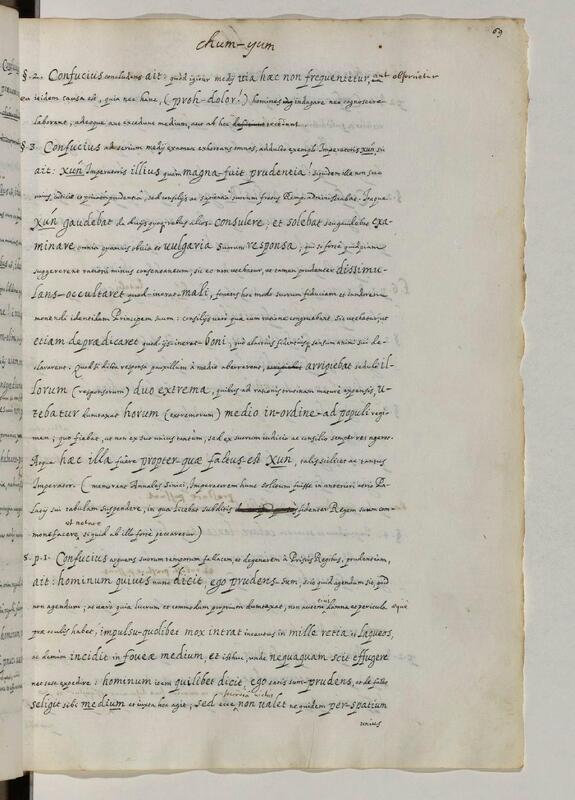 69
chum-yum
§. 2. Confucius concludens ait: quod igitur medij via hæc non frequentetur, aut observetur
ex eisdem causa est, quia nec hanc, (proh-dolor!) homines indagare nec cognoscere
laborant; adeoque aut excedunt medium, aut ab hoc deficiunt
§. 3. Confucius ad serium medij examen exhortans omnes, adducto exemplo Imperatoris Xún, sic
ait: Xún Imperatoris illius quàm magna fuit prudentia! siquidem ille non suo
unius judicio et prudentiâ, sed consilijs ac sapientia suorum fretus Remp. administrabat. Itaque
Xún gaudebat de dubijs quibusvis alios consulere; et solebat exa-
minare omnia quamvis obvia et vulgaria suorum responsa; qui si fortè quidpiam
suggererent rationi minus consentaneum; sic eo non utebatur, ut tamen prudenter dissimu-
lans-occultaret quod-inerat-mali, fovens hoc modo suorum fiduciam et
monendi identidem Principem suum: consilijs verò quæ cum ratione congruebant sic utebatur, ut
etiam deprædicaret quod ijs inerat boni, quo alacrius sensum animi sui de-
clararent. Quod si dicta responsa pauxillum à medio aberrarent, arripiebat sedulò il-
lorum (responsorum) duo extrema, quibus ad rationis trutinam mature expensis, u-
tebatur dumtaxat horum (extremorum) medio in-ordine-ad populi regi-
men; quo fiebat, ut non ex suo unius tantùm, sed ex suorum judicio ac consilio semper res ageret.
Atque hæc illa fuêre propter-quæ factus-est Xún, talis scilicet ac tantus
Imperator. (memorant Annales Sinici, Imperatorem hunc solitum fuisse in anteriori atrio Pa-
latij sui tabulam suspendere, in qua liceret subditis fidenter Regem suum com-
et notare
monefacere, si quid ab illo fortè peccaretur)
§. p. 1. Confucius arguens suorum temporum fallacem, et degenerem à Priscis Regibus, prudentiam,
ait: hominum quivis nunc dicit, ego prudens-sum, scio quid agendum sit, quid
non agendum; at verò quia lucrum et commodum proprium dumtaxat, non autem damna et pericula æquè
præ oculis habet, impulsu-quolibet mox intrat incautus in mille retia et laqueos,
ac demùm incidit in foveæ medium, et isthic, unde nequaquam scit effugere
nec sese expedire: hominum item quilibet dicit, ego satis sum-prudens, et de facto
seligit sibi medium et juxta hoc agit; sed ecce non valet ne quidem per-spatium
unius